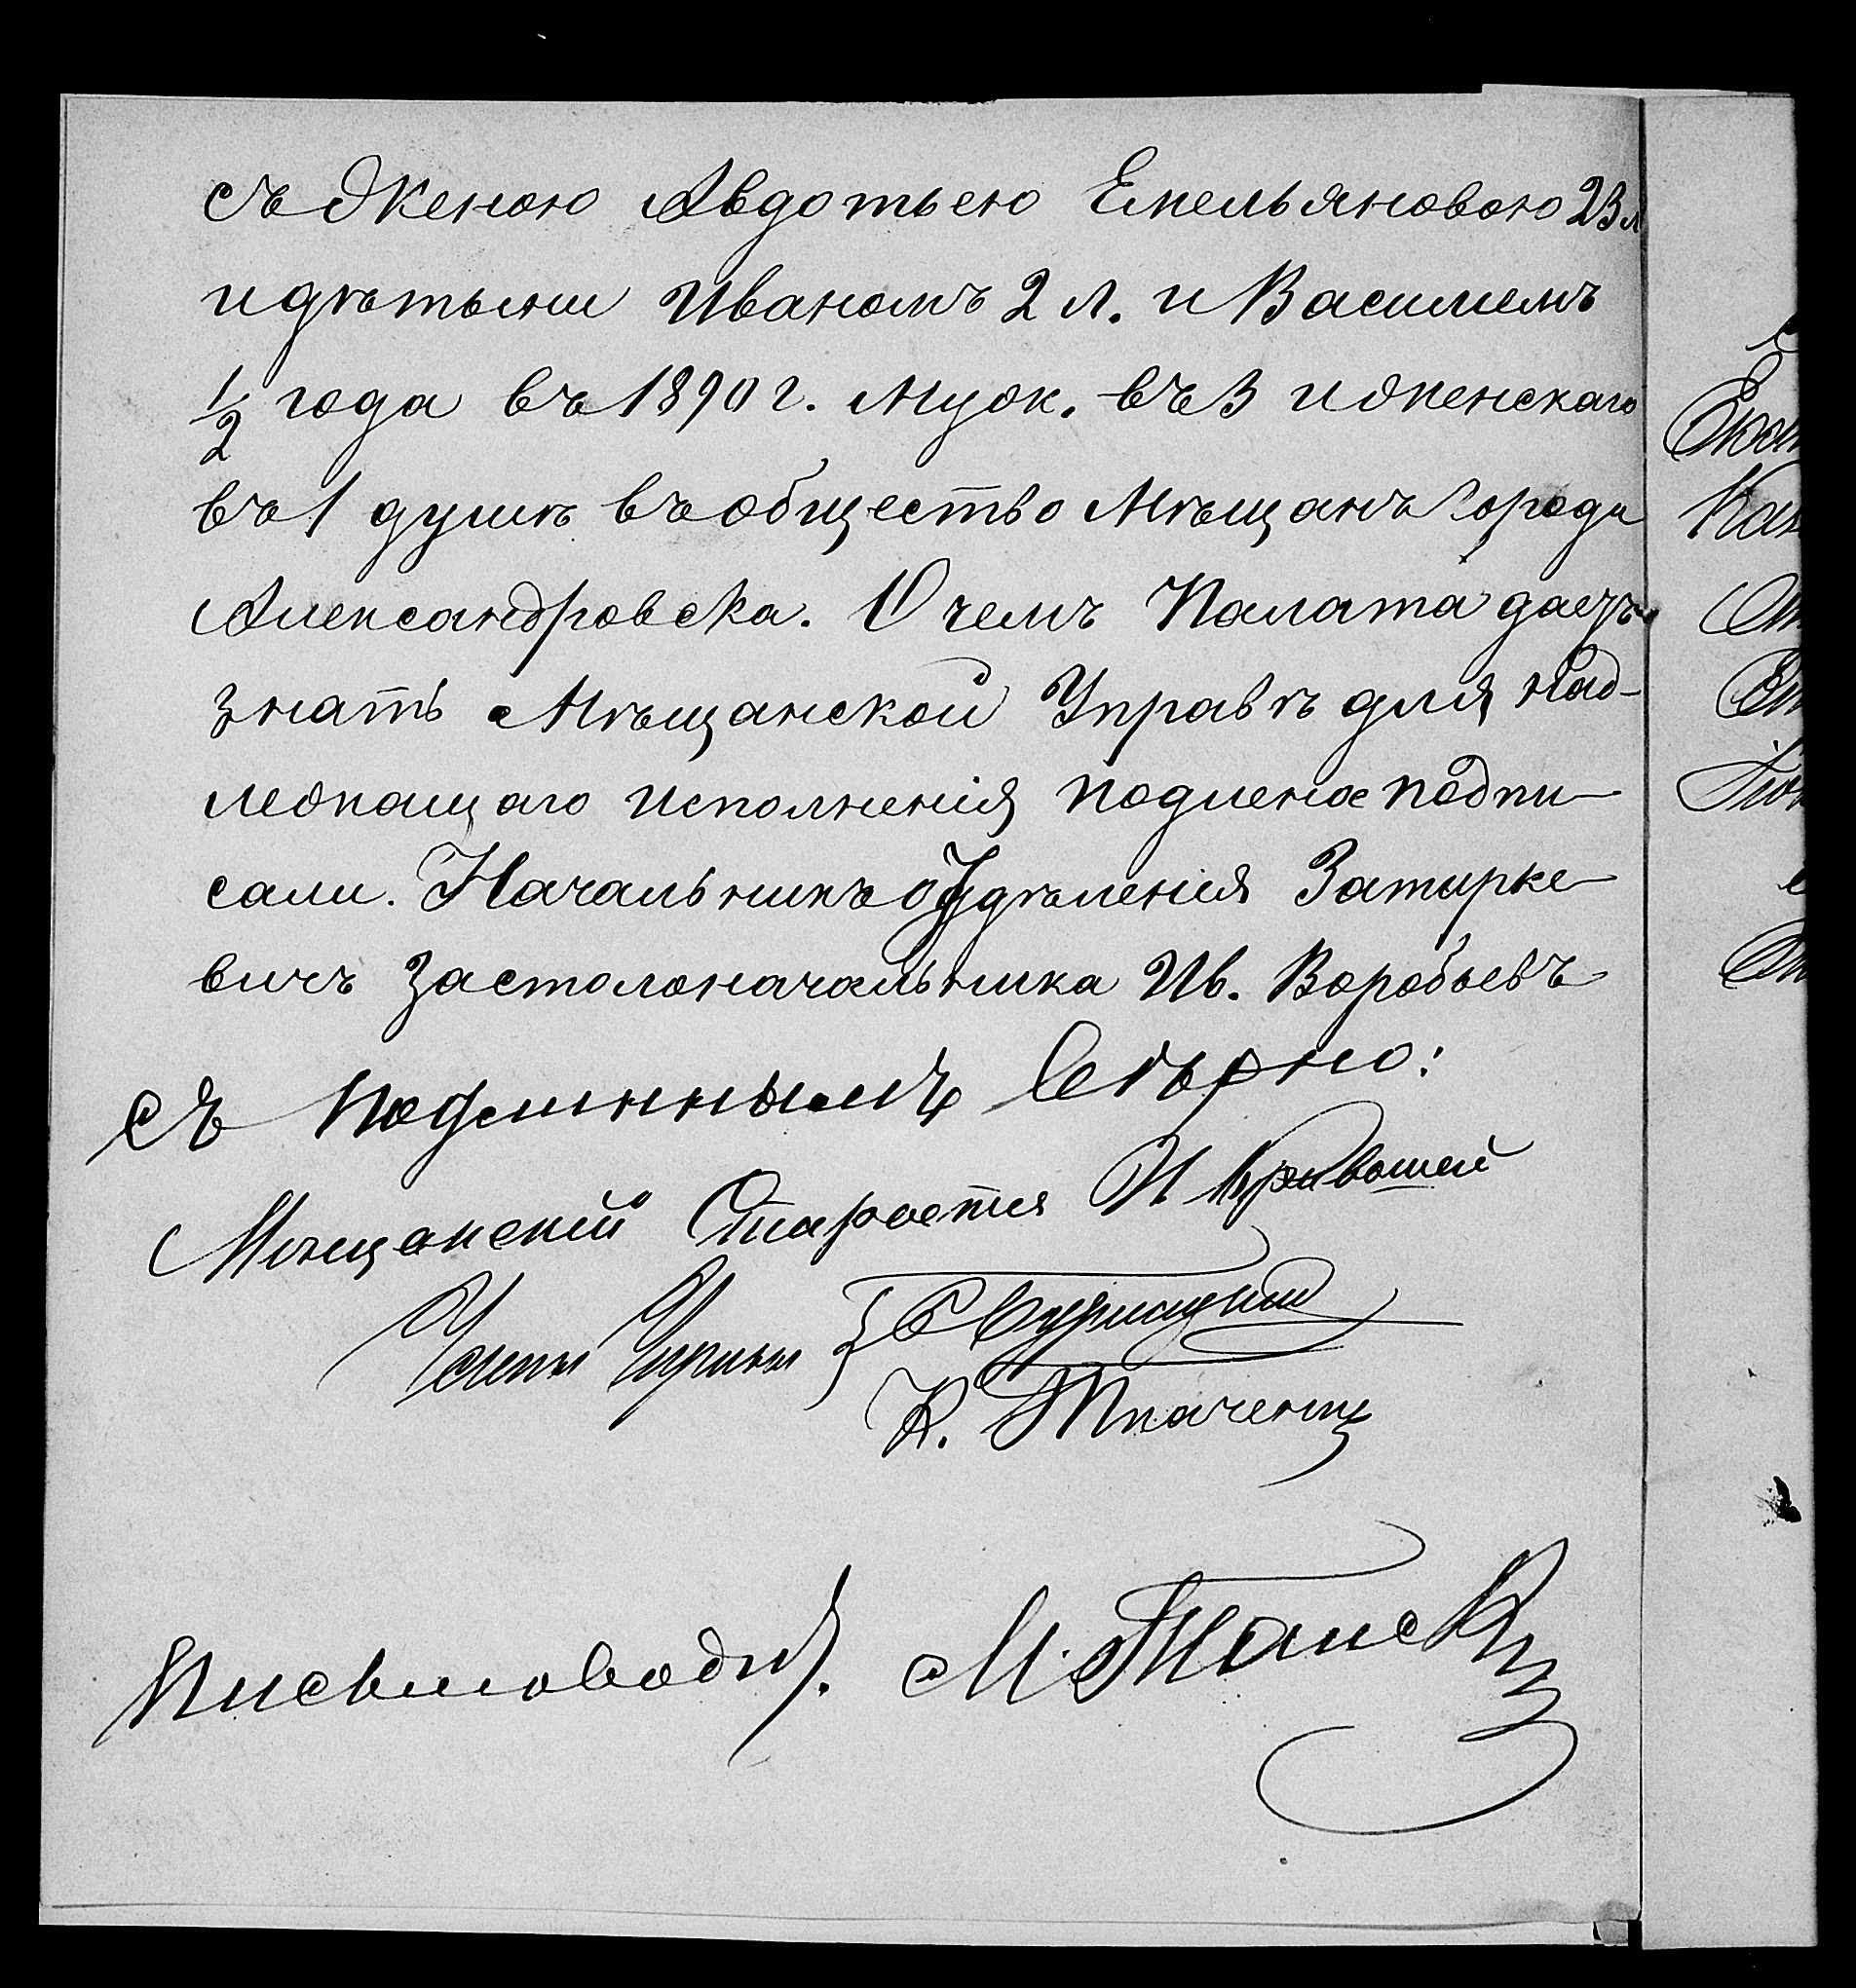 съ женою Авдотьею Емельяновою 23 л
и дѣтьми Иваномъ 2 л. и Василіемъ
1/2 года въ 1890 г. Муж. въ 3 и женскаго
въ 1 душѣ въ общество Мѣщанъ Города
Александровска. О чемъ Палата даетъ
знать Мѣщанской Управѣ для над-
лежащаго исполненія подленое подпи-
сали. Начальникъ отдѣленія Затырке-
вичъ за столоначальника Ив. Воробьевъ
съ подлиннымъ вѣрно:
Мѣщанскій Староста И Кривошей
Члены Управы
К. Ткаченко
Письмоводит. М. Танск